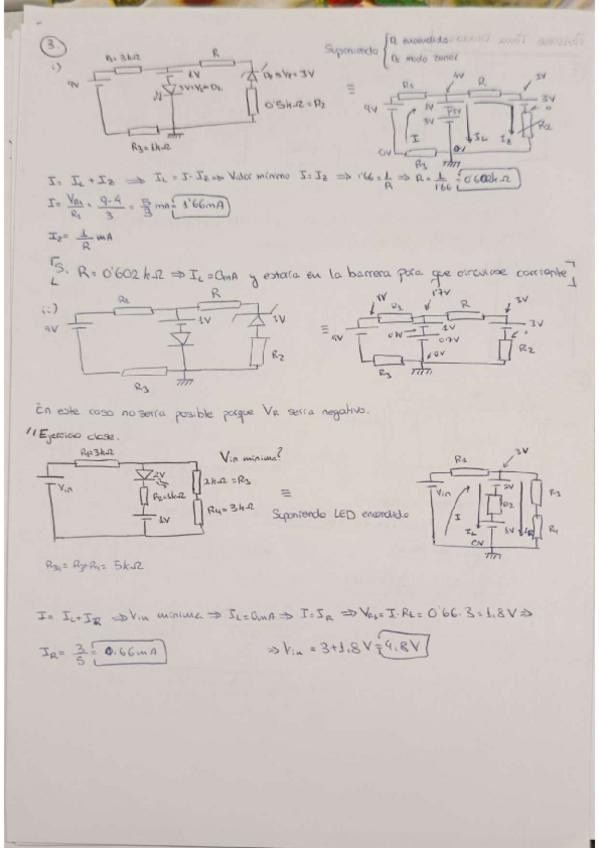 3.
i)
R1=3kΩ
R
9V
1V
Vz=Vr=3V
0'5kΩ=R2
R3=1kΩ
Suponiendo
D1 encendido
D2 modo zener
≡
R1
4V
R
3V
9V
1V
3V
3V
R2
I
IL
Iz
0V
0V
R3
I = IL + Iz ⟹ IL = I - Iz ⟹ Valor mínimo I = Iz ⟹ 1'66 = 1/R ⟹ R = 1/1'66 = 0'602kΩ
I = VR1/R1 = 9-4/3 = 5/3 mA = 1'66mA
Iz = 1/R mA
Si R = 0'602kΩ ⟹ IL = 0mA y estaría en la barrera para que circulase corriente
ii)
R1
R
9V
1V
3V
R2
R3
≡
R1
1'7V
R
3V
9V
0'7V
1V
0'7V
3V
R2
0V
R3
En este caso no sería posible porque VR sería negativo.
"Ejercicio clase.
R1=3kΩ
Vin mínima?
Vin
2V
R2=1kΩ
1V
2kΩ=R3
R4=3kΩ
≡
Suponiendo LED encendido
R1
3V
Vin
2V
R2
R3
I
IL
1V
IR
R4
0V
R34 = R3+R4 = 5kΩ
I = IL+IR ⟹ Vin mínima ⟹ IL=0mA ⟹ I=IR ⟹ VR1=I·R1=0'66·3=1.8V ⟹
IR = 3/5 = 0.66mA
⟹ Vin = 3+1.8V = 4.8V